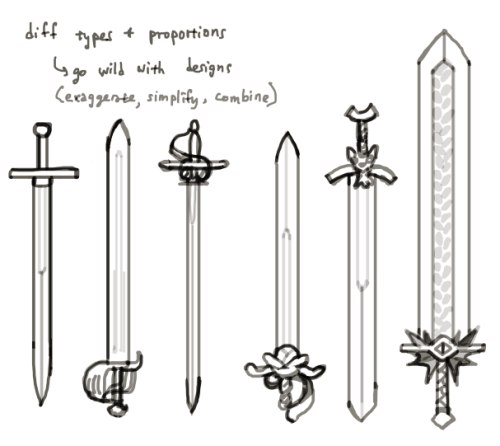 diff types + proportions
↳ go wild with designs
(exaggerate, simplify, combine)